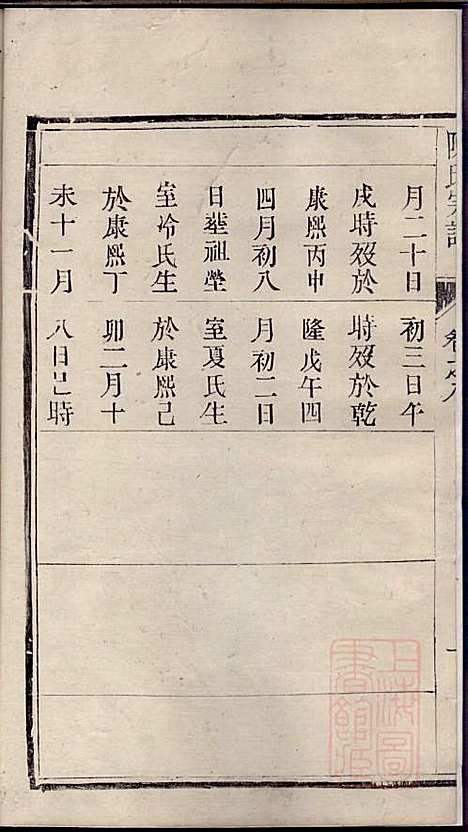 陳氏宗譜
卷之八
月二十日
戌時歿於
康熙丙申
四月初八
日葬祖塋
室冷氏生
於康熙丁
未十一月
初三日午
時歿於乾
隆戊午四
月初二日
室夏氏生
於康熙己
卯二月十
八日巳時
上海圖書館藏